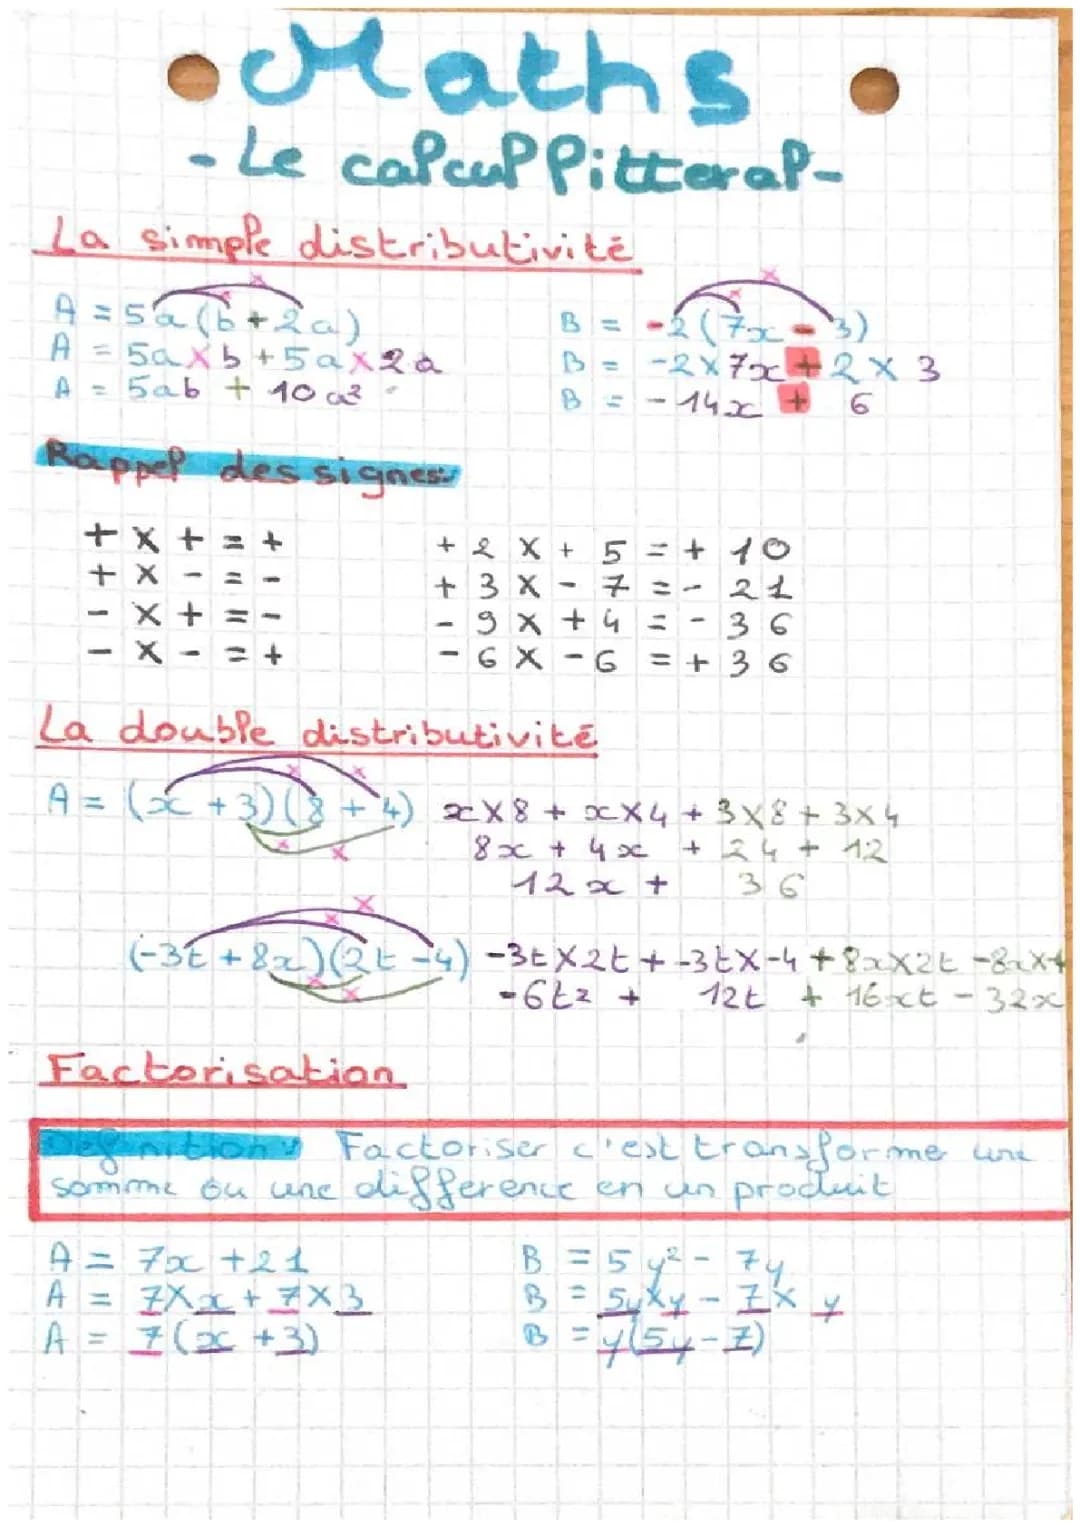 Maths
- Le calcul litteral -
La simple distributivité
A = 5a(b+2a)
A = 5a×b+5a×2a
A = 5ab + 10a²
B = -2(7x-3)
B = -2×7x+2×3
B = -14x + 6
Rappel des signes:
+ × + = +
+ × - = -
- × + = -
- × - = +
+ 2 × + 5 = + 10
+ 3 × - 7 = - 21
- 9 × + 4 = - 36
- 6 × - 6 = + 36
La double distributivité
A = (x+3)(8+4) x×8 + x×4 + 3×8 + 3×4
8x + 4x + 24 + 12
12x + 36
(-3t+8x)(2t-4) -3t×2t+-3t×-4+8x×2t-8x×4
-6t² + 12t + 16xt - 32x
Factorisation
Definition: Factoriser c'est transformer une
somme ou une difference en un produit
A = 7x + 21
A = 7×x+7×3
A = 7(x+3)
B = 5y² - 7y
B = 5y×y - 7×y
B = y(5y-7)